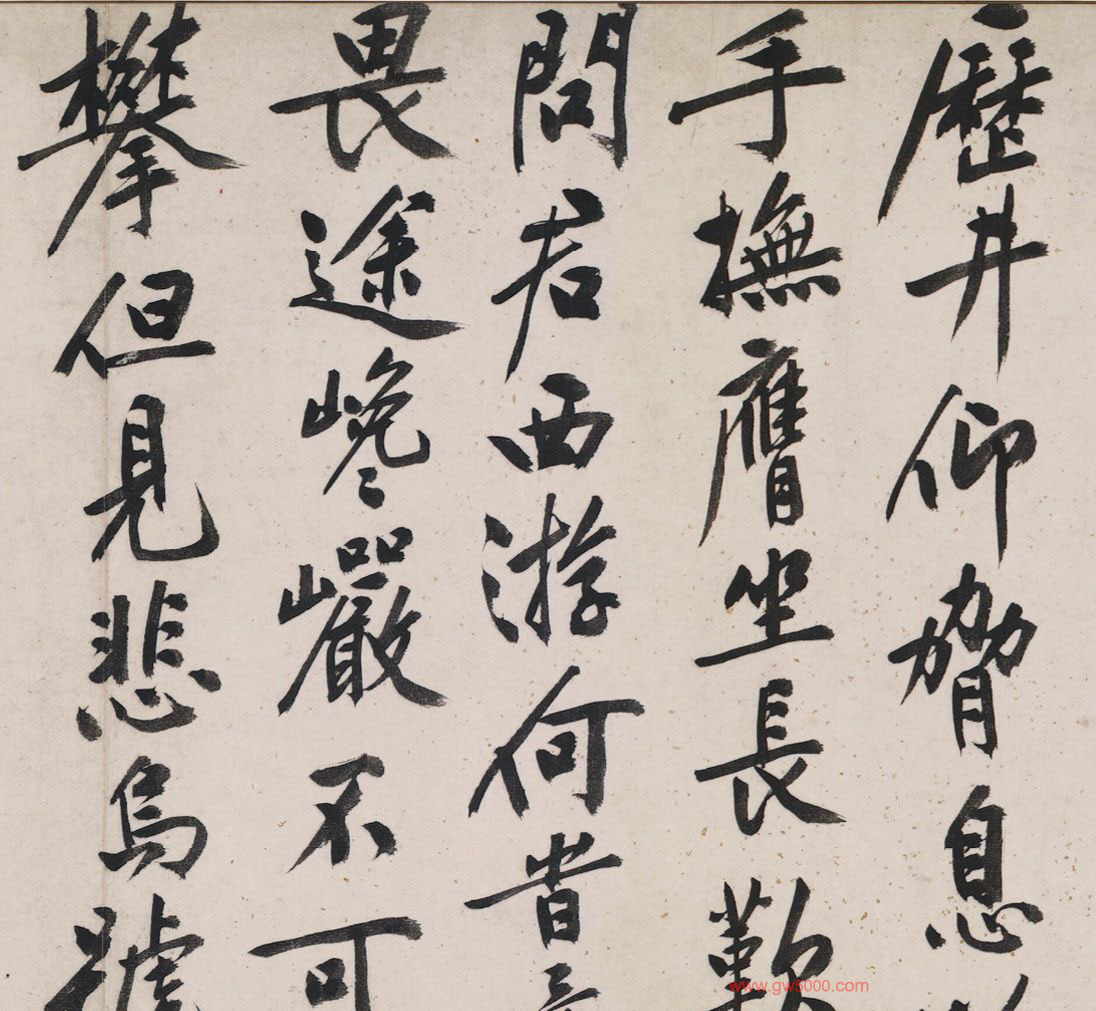 歷井仰脅息
手撫膺坐長歎
問君西游何旹
畏途巉巖不可
攀但見悲鳥號
www.gw5000.com